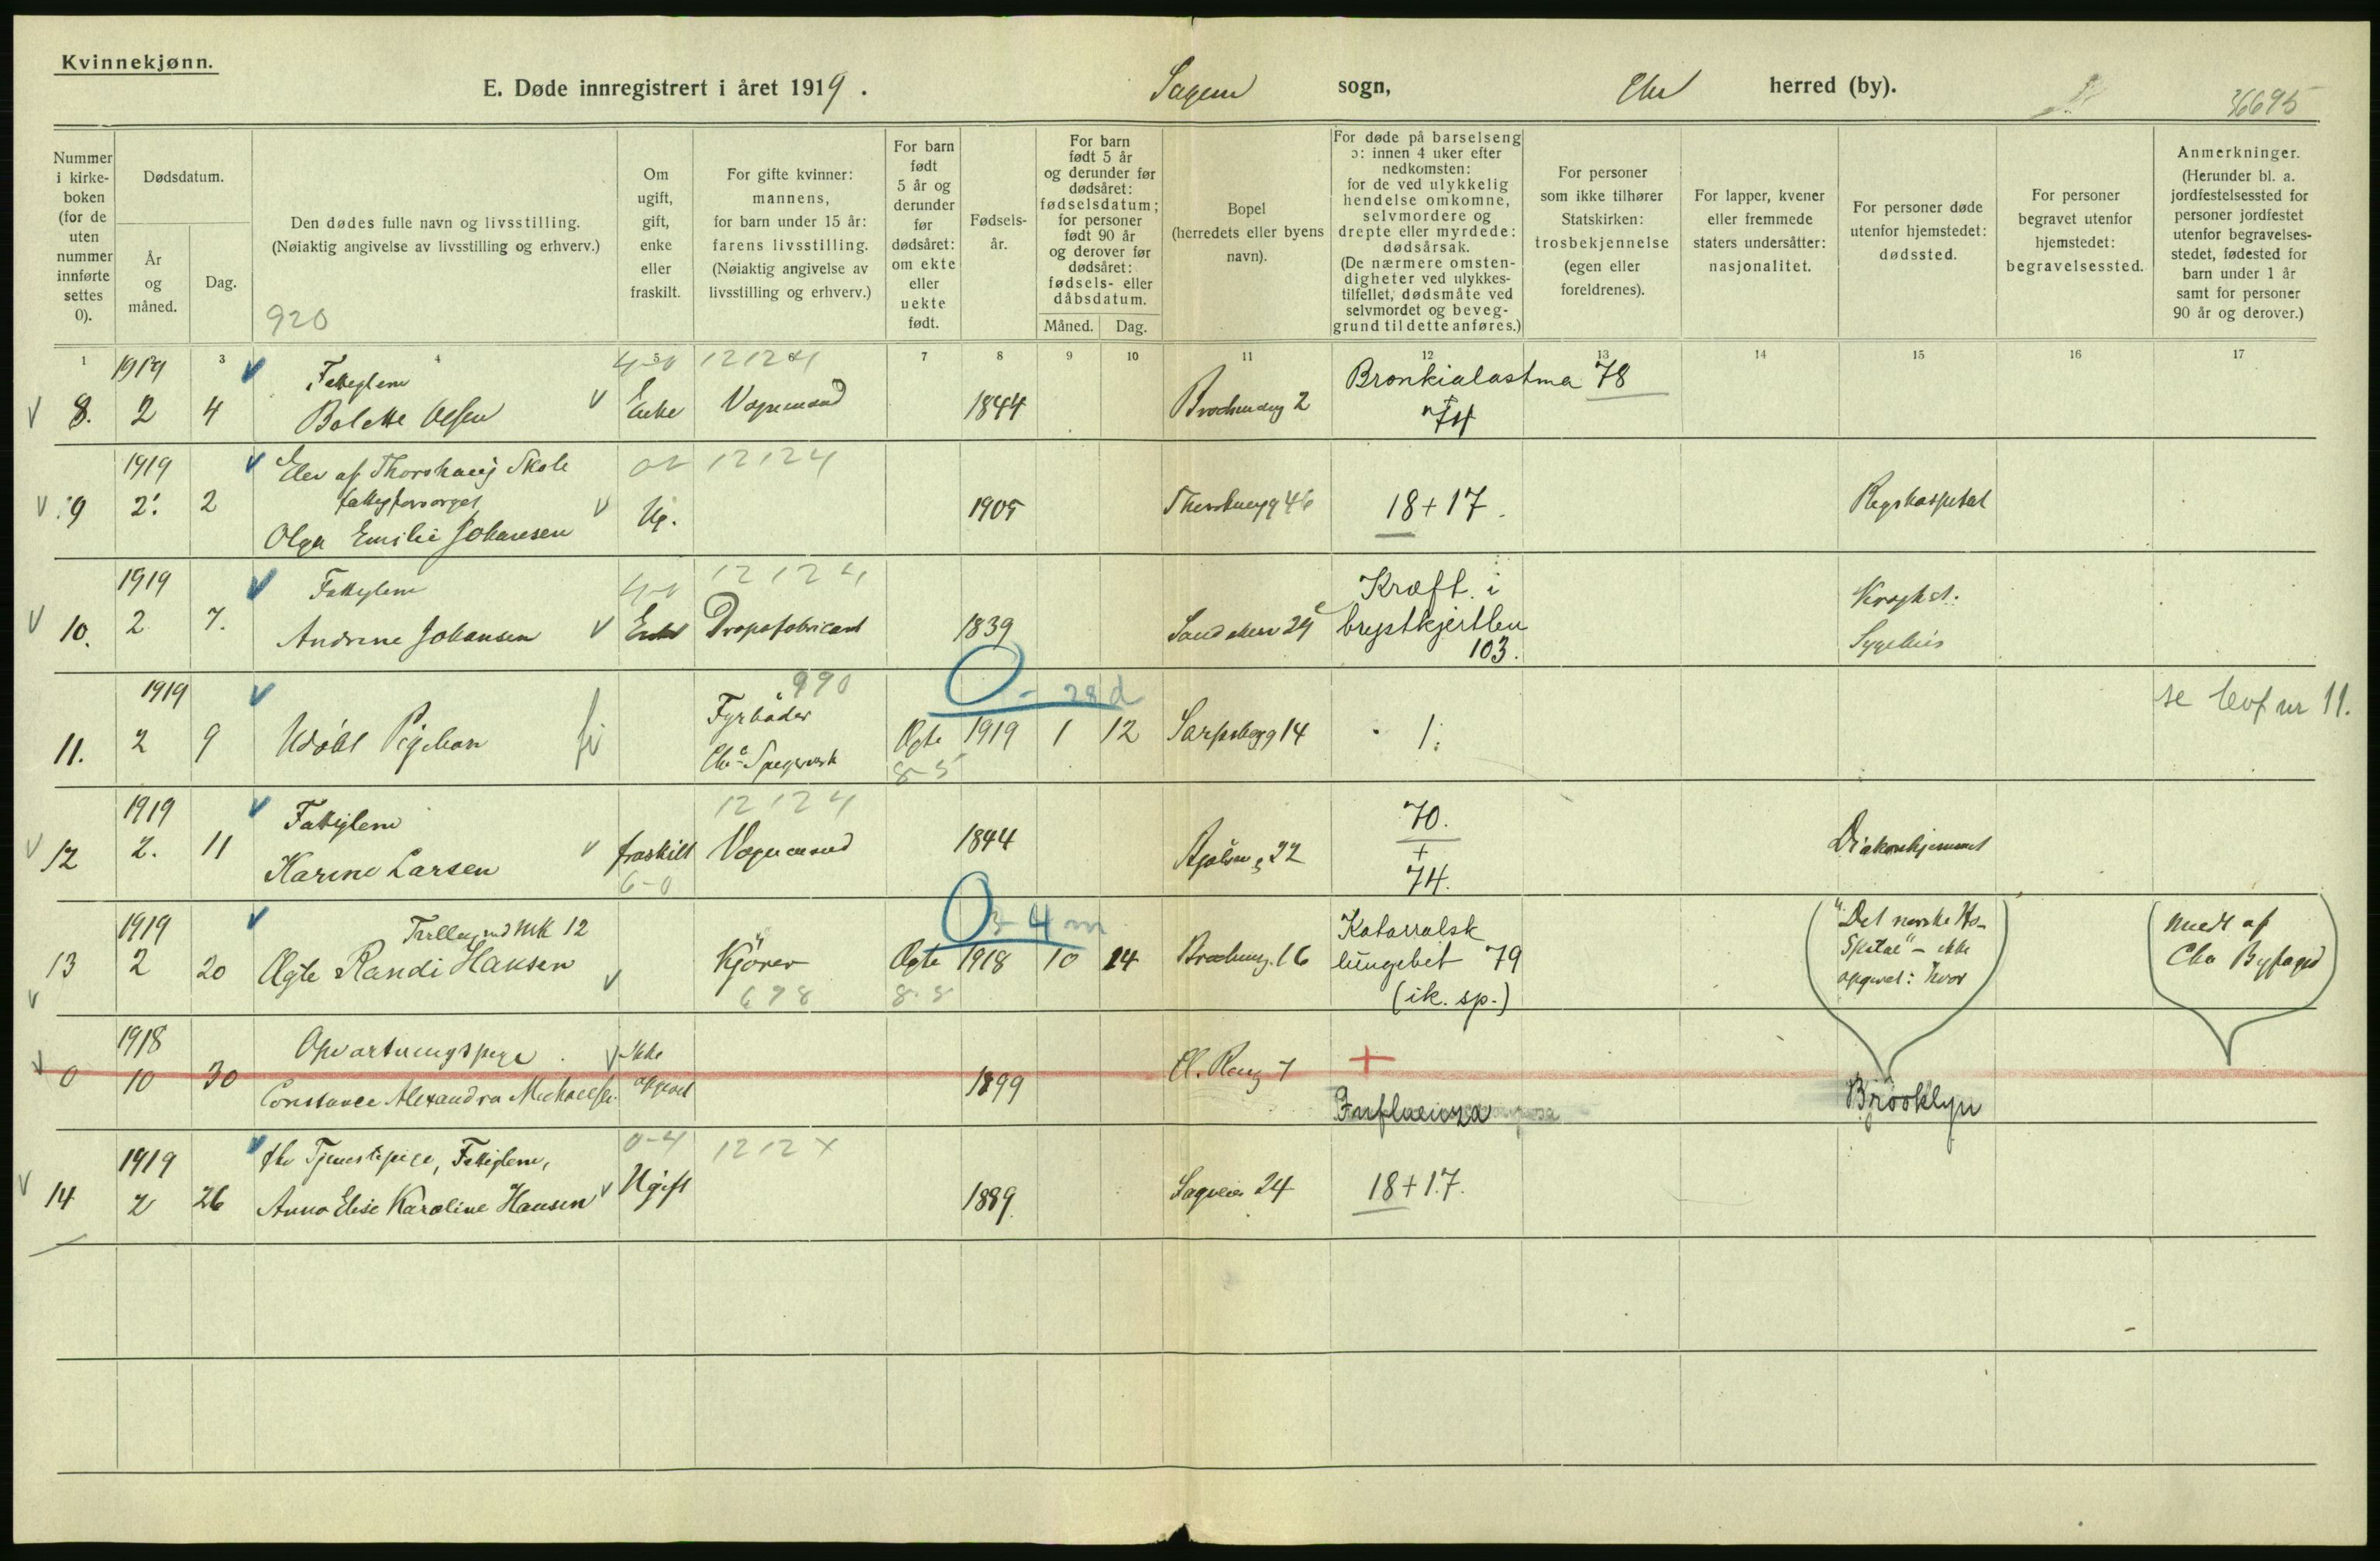 Kvinnekjønn.
E. Døde innregistrert i året 1919. Sagene sogn, Chr herred (by). 36695
Nummer i kirkeboken (for de uten nummer innførte settes 0).
Dødsdatum.
År og måned.
Dag.
Den dødes fulle navn og livsstilling.
(Nøiaktig angivelse av livsstilling og erhverv.)
920
Om ugift, gift, enke eller fraskilt.
For gifte kvinner: mannens, for barn under 15 år: farens livsstilling. (Nøiaktig angivelse av livsstilling og erhverv.)
For barn født 5 år og derunder før dødsåret: om ekte eller uekte født.
Fødselsår.
For barn født 5 år og derunder før dødsåret: fødselsdatum; for personer født 90 år og derover før dødsåret: fødsels- eller dåbsdatum.
Måned. Dag.
Bopel (herredets eller byens navn).
For døde på barselseng ɔ: innen 4 uker efter nedkomsten: for de ved ulykkelig hendelse omkomne, selvmordere og drepte eller myrdede: dødsårsak. (De nærmere omstendigheter ved ulykkestilfellet, dødsmåte ved selvmordet og beveggrund til dette anføres.)
For personer som ikke tilhører Statskirken: trosbekjennelse (egen eller foreldrenes).
For lapper, kvener eller fremmede staters undersåtter: nasjonalitet.
For personer døde utenfor hjemstedet: dødssted.
For personer begravet utenfor hjemstedet: begravelsessted.
Anmerkninger. (Herunder bl. a. jordfestelsessted for personer jordfestet utenfor begravelsesstedet, fødested for barn under 1 år samt for personer 90 år og derover.)
1 3 4 5 6 7 8 9 10 11 12 13 14 15 16 17
1919 Fattiglem 4-0 12124 Bronkialastma 78
8. 2 4 Bolette Olsen Enke Vognmand 1844 2 + 74
1919 Elev af Thorshaug Skole 12124
9 2. 2 fattigforsørget Ug. 1905 Thorshaugg 46 18+17. Rigshospitalet
Olga Emilie Johansen
1919 Fattiglem 4-0 12124 Kræft i Krogh st.
10. 2 7. Andrine Johansen Enke Dropsfabricant 1839 Sandakerv 29 brystkjertlen Sygehus
103.
1919 990 0- 28 d se levf nr 11.
11. 2 9 Udøbt Pigebarn Fyrbøder Ægte 1919 1 12 Sarpsborgg 14 1.
Chra Spigerverk 8-5
1919 Fattiglem 12124 70.
12 2. 11 Karine Larsen fraskilt Vognmand 1844 22 + Diakonhjemmet
6-0 74.
1919 Tvilling med MK 12 0 3-4 m Katarralsk "Det norske Ho- medt af
13 2 20 Ægte Randi Hansen Kjører Ægte 1918 10 14 16 lungebet 79 spital" - ikke Chra Byfoged
698 8-5 (ik. sp.) opgivet: hvor
1918 Opvartningspige ikke +
0 10 30 Constance Alexandra Michaelsen opgivet 1899 7 Influenza Brooklyn
1919 fhv Tjenestepige, Fattiglem, 0-4 1212 x
14 2 26 Anna Elise Karoline Hansen Ugift 1889 Sagveien 24 18+17.